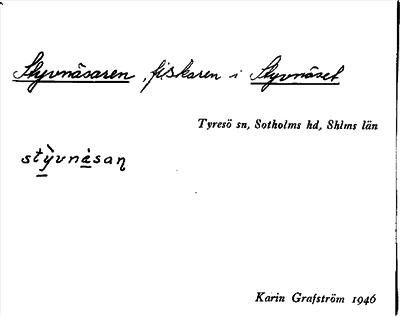 Styvnäsaren, fiskaren i Styvnäset
Tyresö sn, Sotholms hd, Shlms län
stỳvnásaꞑ
Karin Grafström 1946